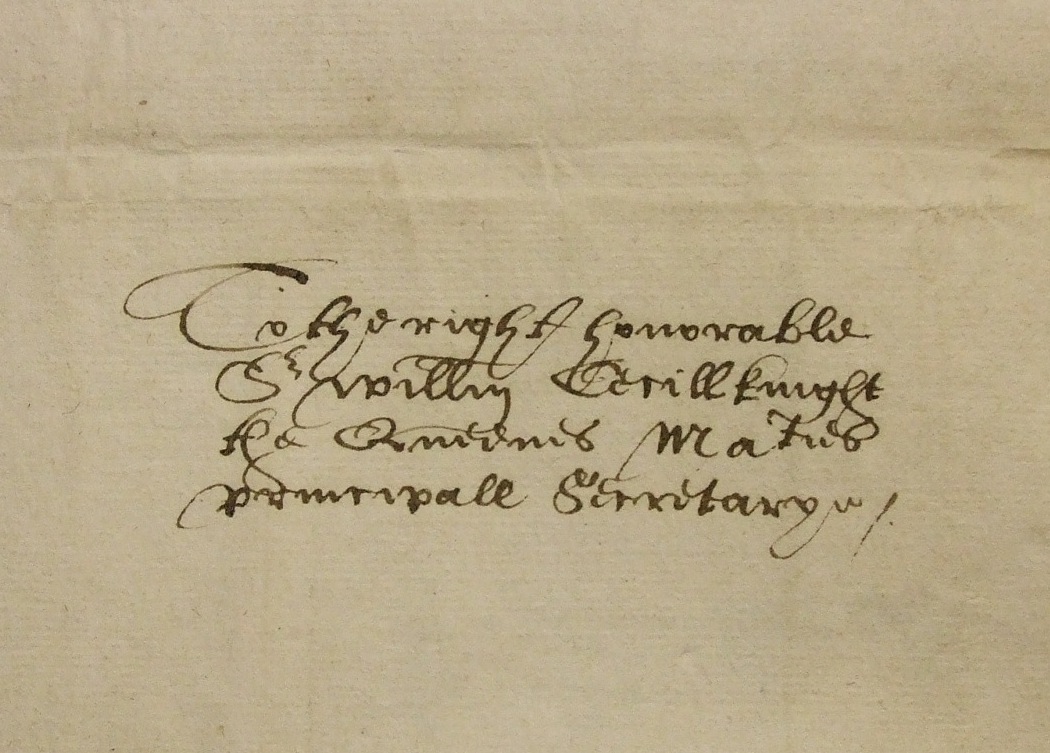 To the right honorable
Sr willm Cecill knight
the Queenes Maties
principall Secretarye /.